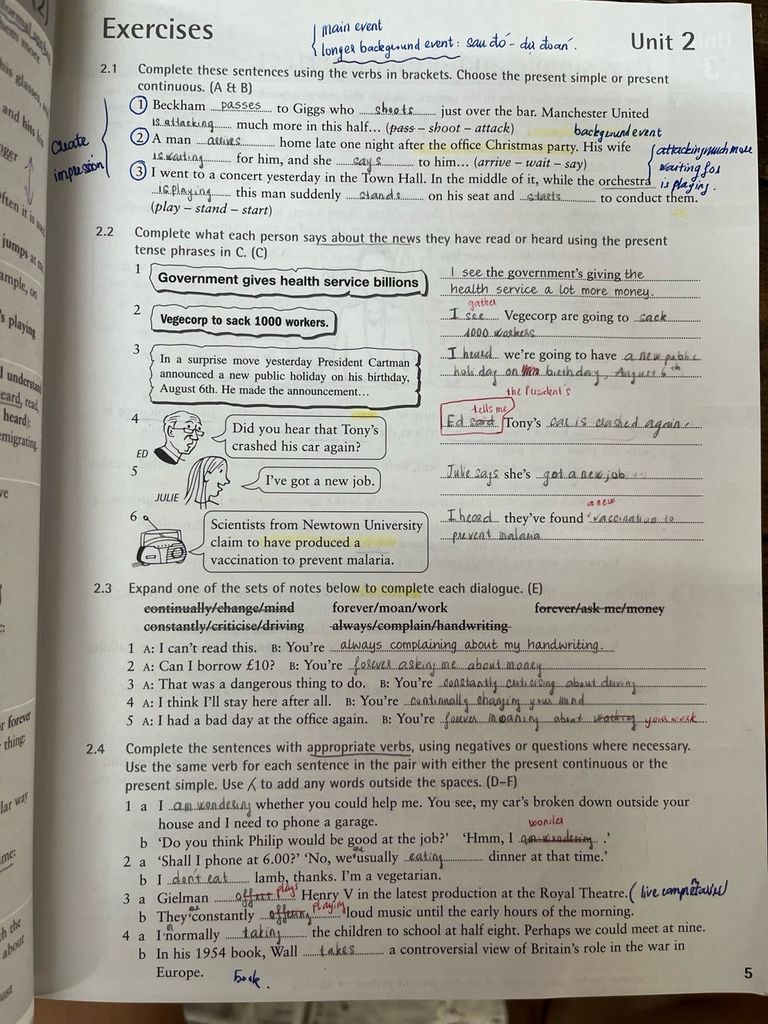 Exercises
Unit 2
main event
longer background event: sau đó - dự đoán.
2.1 Complete these sentences using the verbs in brackets. Choose the present simple or present
continuous. (A & B)
Create impression
1 Beckham passes to Giggs who shoots just over the bar. Manchester United
is attacking much more in this half... (pass – shoot – attack)
background event
2 A man arrives home late one night after the office Christmas party. His wife
is waiting for him, and she says to him... (arrive – wait – say)
attacking much more
waiting for
is playing.
3 I went to a concert yesterday in the Town Hall. In the middle of it, while the orchestra
is playing this man suddenly stands on his seat and starts to conduct them.
(play – stand – start)
2.2 Complete what each person says about the news they have read or heard using the present
tense phrases in C. (C)
1 Government gives health service billions
I see the government's giving the
health service a lot more money.
2 Vegecorp to sack 1000 workers.
gather
I see Vegecorp are going to sack
1000 workers
3 In a surprise move yesterday President Cartman
announced a new public holiday on his birthday,
August 6th. He made the announcement...
I heard we're going to have a new public
holiday on birthday, August 6th
the President's
4 ED
Did you hear that Tony's
crashed his car again?
tells me
Ed said Tony's car is crashed again.
5 JULIE
I've got a new job.
Julie says she's got a new job
6 Scientists from Newtown University
claim to have produced a
vaccination to prevent malaria.
a new
I heard they've found vaccination to
prevent malaria
2.3 Expand one of the sets of notes below to complete each dialogue. (E)
continually/change/mind forever/moan/work forever/ask me/money
constantly/criticise/driving always/complain/handwriting
1 A: I can't read this. B: You're always complaining about my handwriting.
2 A: Can I borrow £10? B: You're forever asking me about money
3 A: That was a dangerous thing to do. B: You're constantly criticising about driving
4 A: I think I'll stay here after all. B: You're continually changing your mind
5 A: I had a bad day at the office again. B: You're forever moaning about working your work
2.4 Complete the sentences with appropriate verbs, using negatives or questions where necessary.
Use the same verb for each sentence in the pair with either the present continuous or the
present simple. Use ⁁ to add any words outside the spaces. (D–F)
1 a I am wondering whether you could help me. You see, my car's broken down outside your
house and I need to phone a garage.
wonder
b 'Do you think Philip would be good at the job?' 'Hmm, I am wondering .'
2 a 'Shall I phone at 6.00?' 'No, we are usually eating dinner at that time.'
b I don't eat lamb, thanks. I'm a vegetarian.
3 a Gielman plays Henry V in the latest production at the Royal Theatre.
b They are constantly offering playing loud music until the early hours of the morning.
4 a I'm normally taking the children to school at half eight. Perhaps we could meet at nine.
b In his 1954 book, Wall takes a controversial view of Britain's role in the war in
Europe.
book.
5